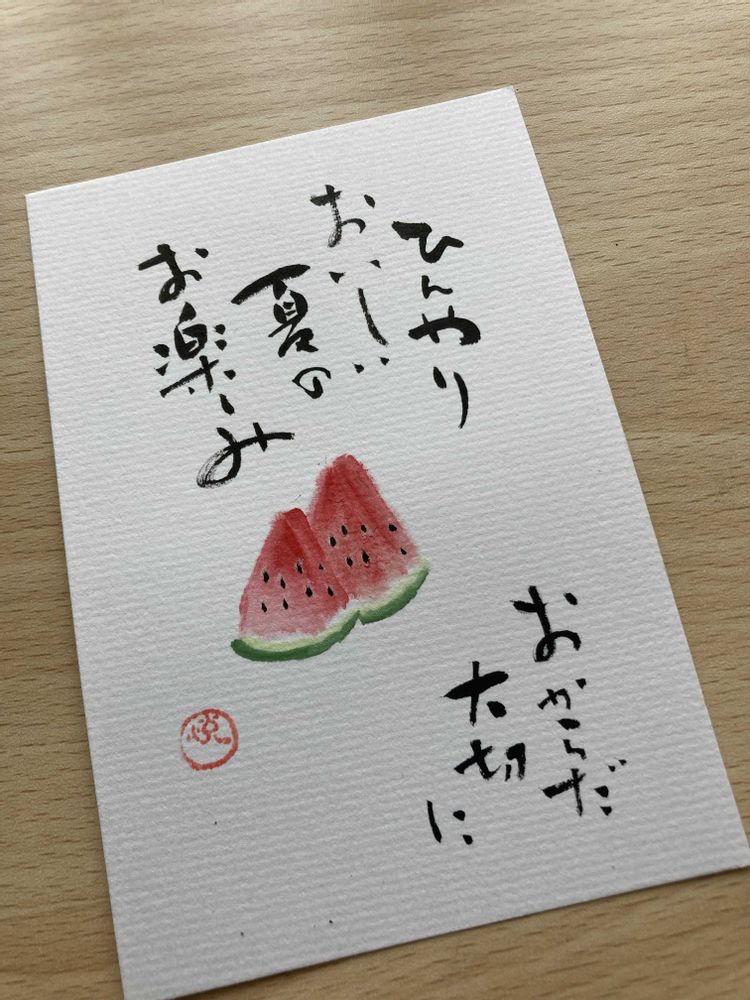 ひんやり
おいしい
夏の
お楽しみ
おからだ
大切に
悦